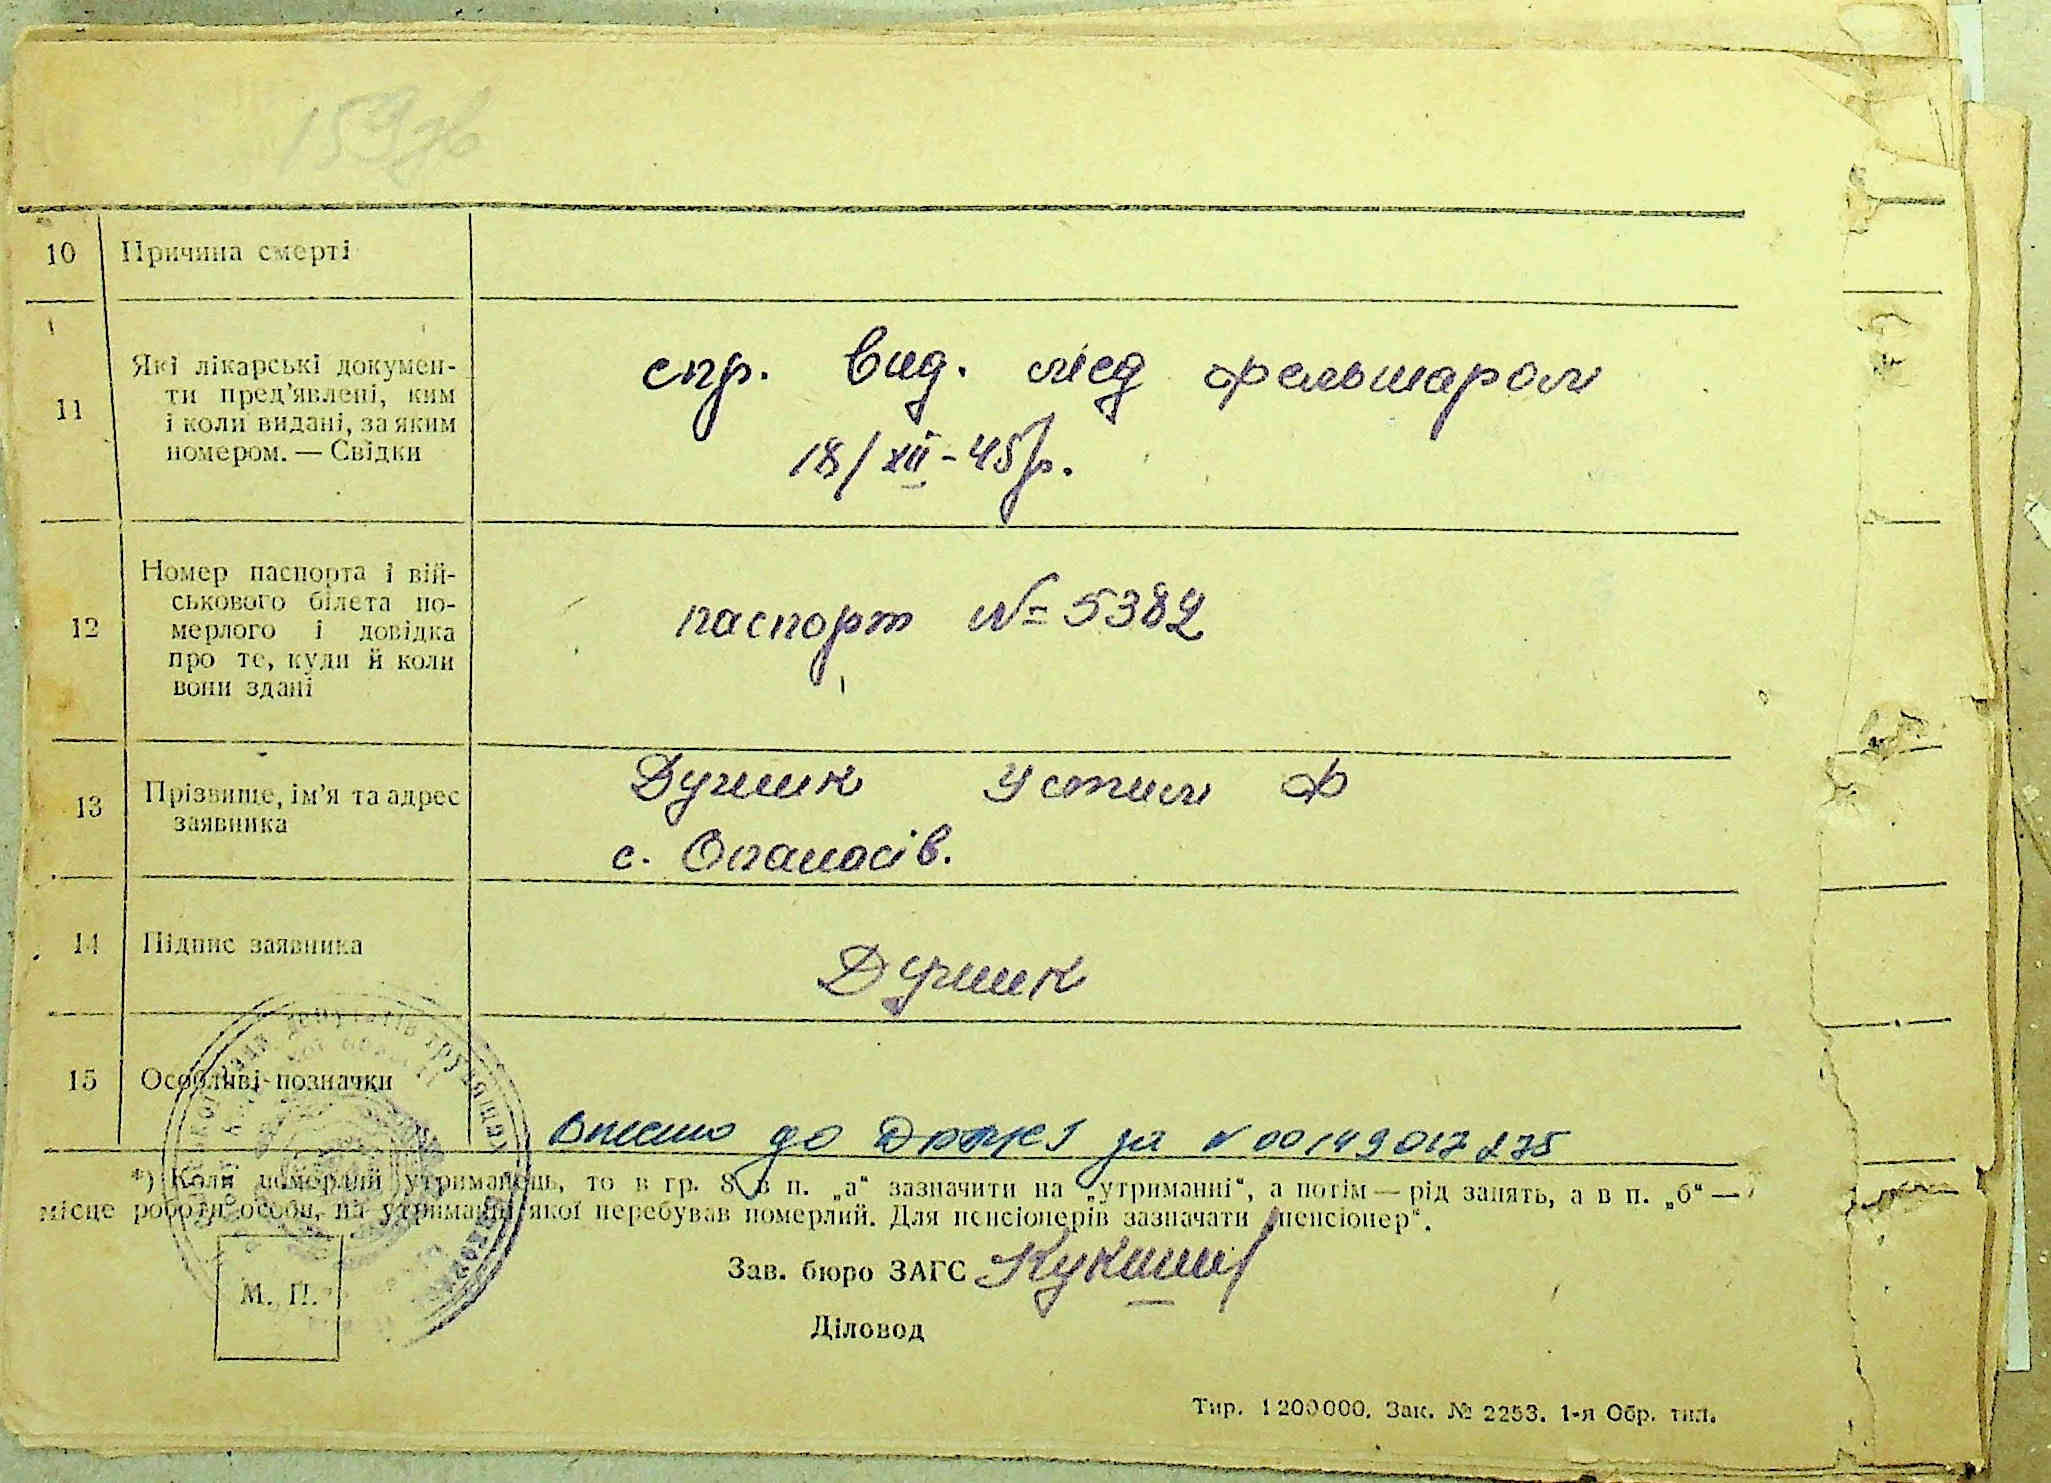 10 Причина смерті
11 Які лікарські докумен-
ти пред'явлені, ким
і коли видані, за яким
номером. — Свідки
спр. вид. мед фельшаром
18/XII-45р.
12 Номер паспорта і вій-
ськового білета по-
мерлого і довідка
про те, куди й коли
вони здані
паспорт № 5382
13 Прізвище, ім'я та адрес
заявника
Устим Ф
с. Опанасів.
14 Підпис заявника
15 Особливі позначки
Внесено до ДРАЦСГ за № 00149017275
*) Коли померлий утриманець, то в гр. 8 в п. „а“ зазначити на „утриманні“, а потім — рід занять, а в п. „б“ —
місце роботи особи, на утриманні якої перебував померлий. Для пенсіонерів зазначати „пенсіонер“.
Зав. бюро ЗАГС
М. П.
Діловод
Тир. 1200000. Зак. № 2253. 1-я Обр. тип.